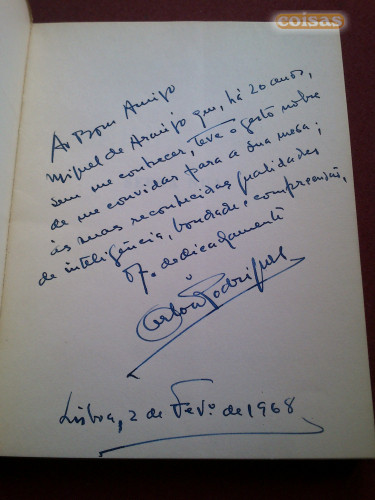 coisas
Ao Bom Amigo
Miguel de Araújo que, há 20 anos,
sem me conhecer, teve o gesto nobre
de me convidar para a sua mesa;
às suas reconhecidas qualidades
de inteligência, bondade e compreensão,
dedicadamente
Rodrigues
Lisboa, 2 de Fevº. de 1968